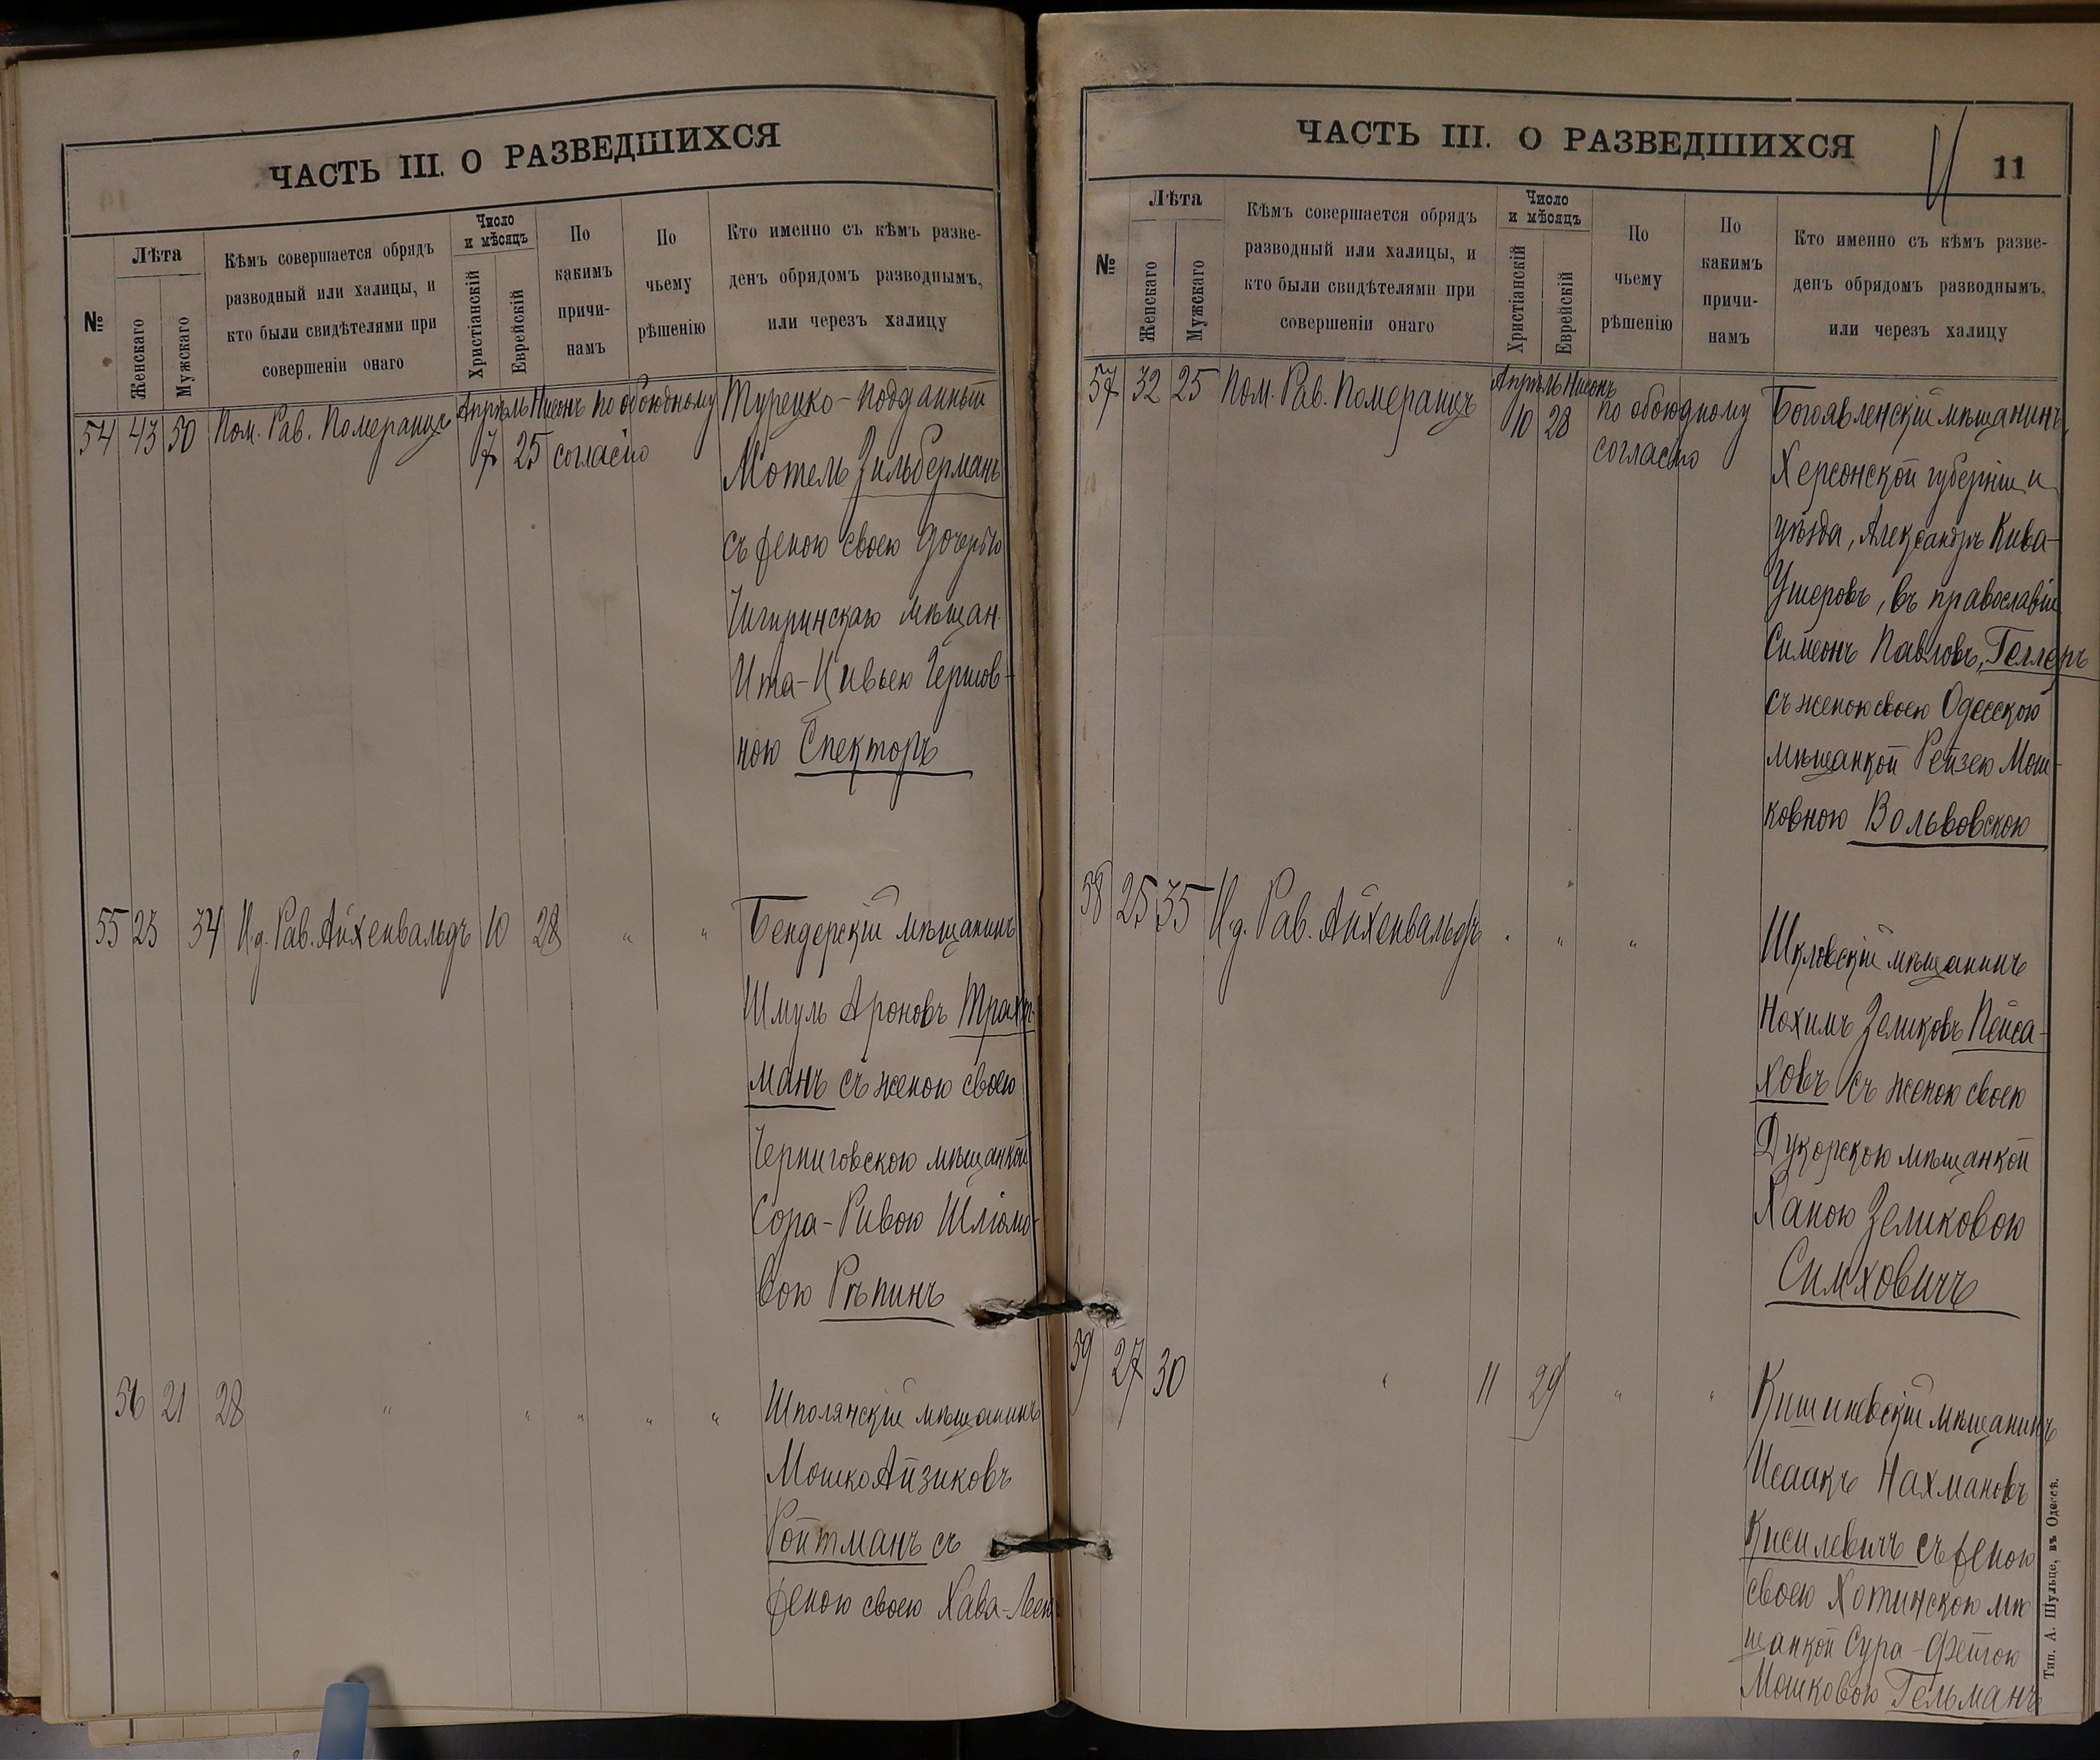 ЧАСТЬ III. О РАЗВЕДШИХСЯ
№
Лѣта
Женскаго
Мужскаго
Кѣмъ совершается обрядъ
разводный или халицы, и
кто были свидѣтелями при
совершеніи онаго
Число
и мѣсяцъ
Христіанскій
Еврейскій
По
какимъ
причи-
намъ
По
чьему
рѣшенію
Кто именно съ кѣмъ разве-
денъ обрядомъ разводнымъ,
или черезъ халицу
54 43 50 Пом. Рав. Померанцъ Апрѣль Нисонъ По обоюдному Турецко-подданный
7 25 согласію
Мотель Зильберманъ
съ женою своею дочерью
Чигиринскаго мѣщан.
Ита-Цивьею Гершов-
ною Спекторъ
55 23 34 И.д. Рав. Айхенвальдъ 10 28 " " Бендерскій мѣщанинъ
Шмуль Ароновъ Трахт-
манъ съ женою своею
Черниговскою мѣщанкой
Сора-Ривою Шліомо-
вою Рѣпинъ
56 21 28 " " " " " Шполянскій мѣщанинъ
Мошко Айзиковъ
Ройтманъ съ
женою своею Хава-Леею
ЧАСТЬ III. О РАЗВЕДШИХСЯ
11
№
Лѣта
Женскаго
Мужскаго
Кѣмъ совершается обрядъ
разводный или халицы, и
кто были свидѣтелями при
совершеніи онаго
Число
и мѣсяцъ
Христіанскій
Еврейскій
По
чьему
рѣшенію
По
какимъ
причи-
намъ
Кто именно съ кѣмъ разве-
денъ обрядомъ разводнымъ,
или черезъ халицу
57 32 25 Пом. Рав. Померанцъ Апрѣль Нисонъ
10 28 по обоюдному
согласію
Богоявленскій мѣщанинъ,
Херсонской губерніи и
уѣзда, Александръ Кива-
Ушеровъ, въ православіи
Симеонъ Павловъ, Геллеръ
съ женою своею Одесскою
мѣщанкой Рейзею Мош-
ковною Вольвовскою
58 25 35 И.д. Рав. Айхенвальдъ " " "
Шкловскій мѣщанинъ
Нохимъ Зеликовъ Пейса-
ховъ съ женою своею
Дукорскою мѣщанкой
Ханою Зеликовою
Симховичъ
59 27 30 " 11 29 " "
Кишиневскій мѣщанинъ
Исаакъ Нахмановъ
Кисилевичъ съ женою
своею Хотинскою мѣ
щанкой Сура-Фейгою
Мошковою Гельманъ
Тип. А. Шульце, въ Одессѣ.